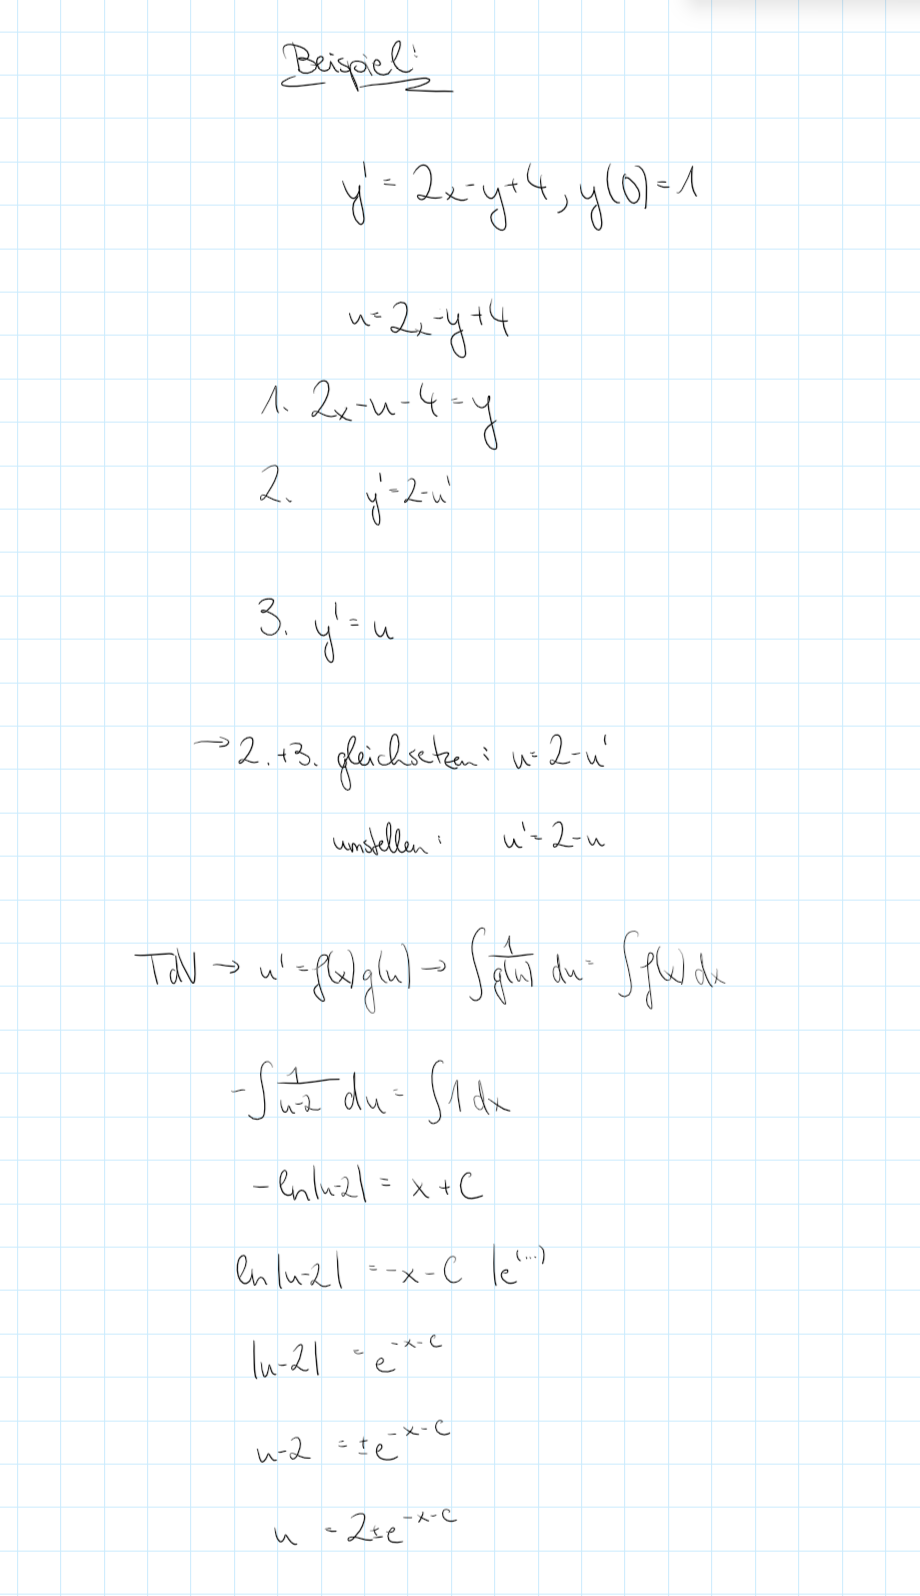 Beispiel:
y' = 2x-y+4, y(0)=1
u=2x-y+4
1. 2x-u-4=y
2. y'=2-u'
3. y'=u
→2.+3. gleichsetzen: u=2-u'
umstellen: u'=2-u
TdV → u'=f(x)g(u) → ∫ 1/g(u) du = ∫f(x) dx
-∫ 1/(u-2) du = ∫1 dx
-ln|u-2| = x+C
ln|u-2| = -x-C |e^(...)
|u-2| = e^(-x-C)
u-2 = ±e^(-x-C)
u = 2±e^(-x-C)